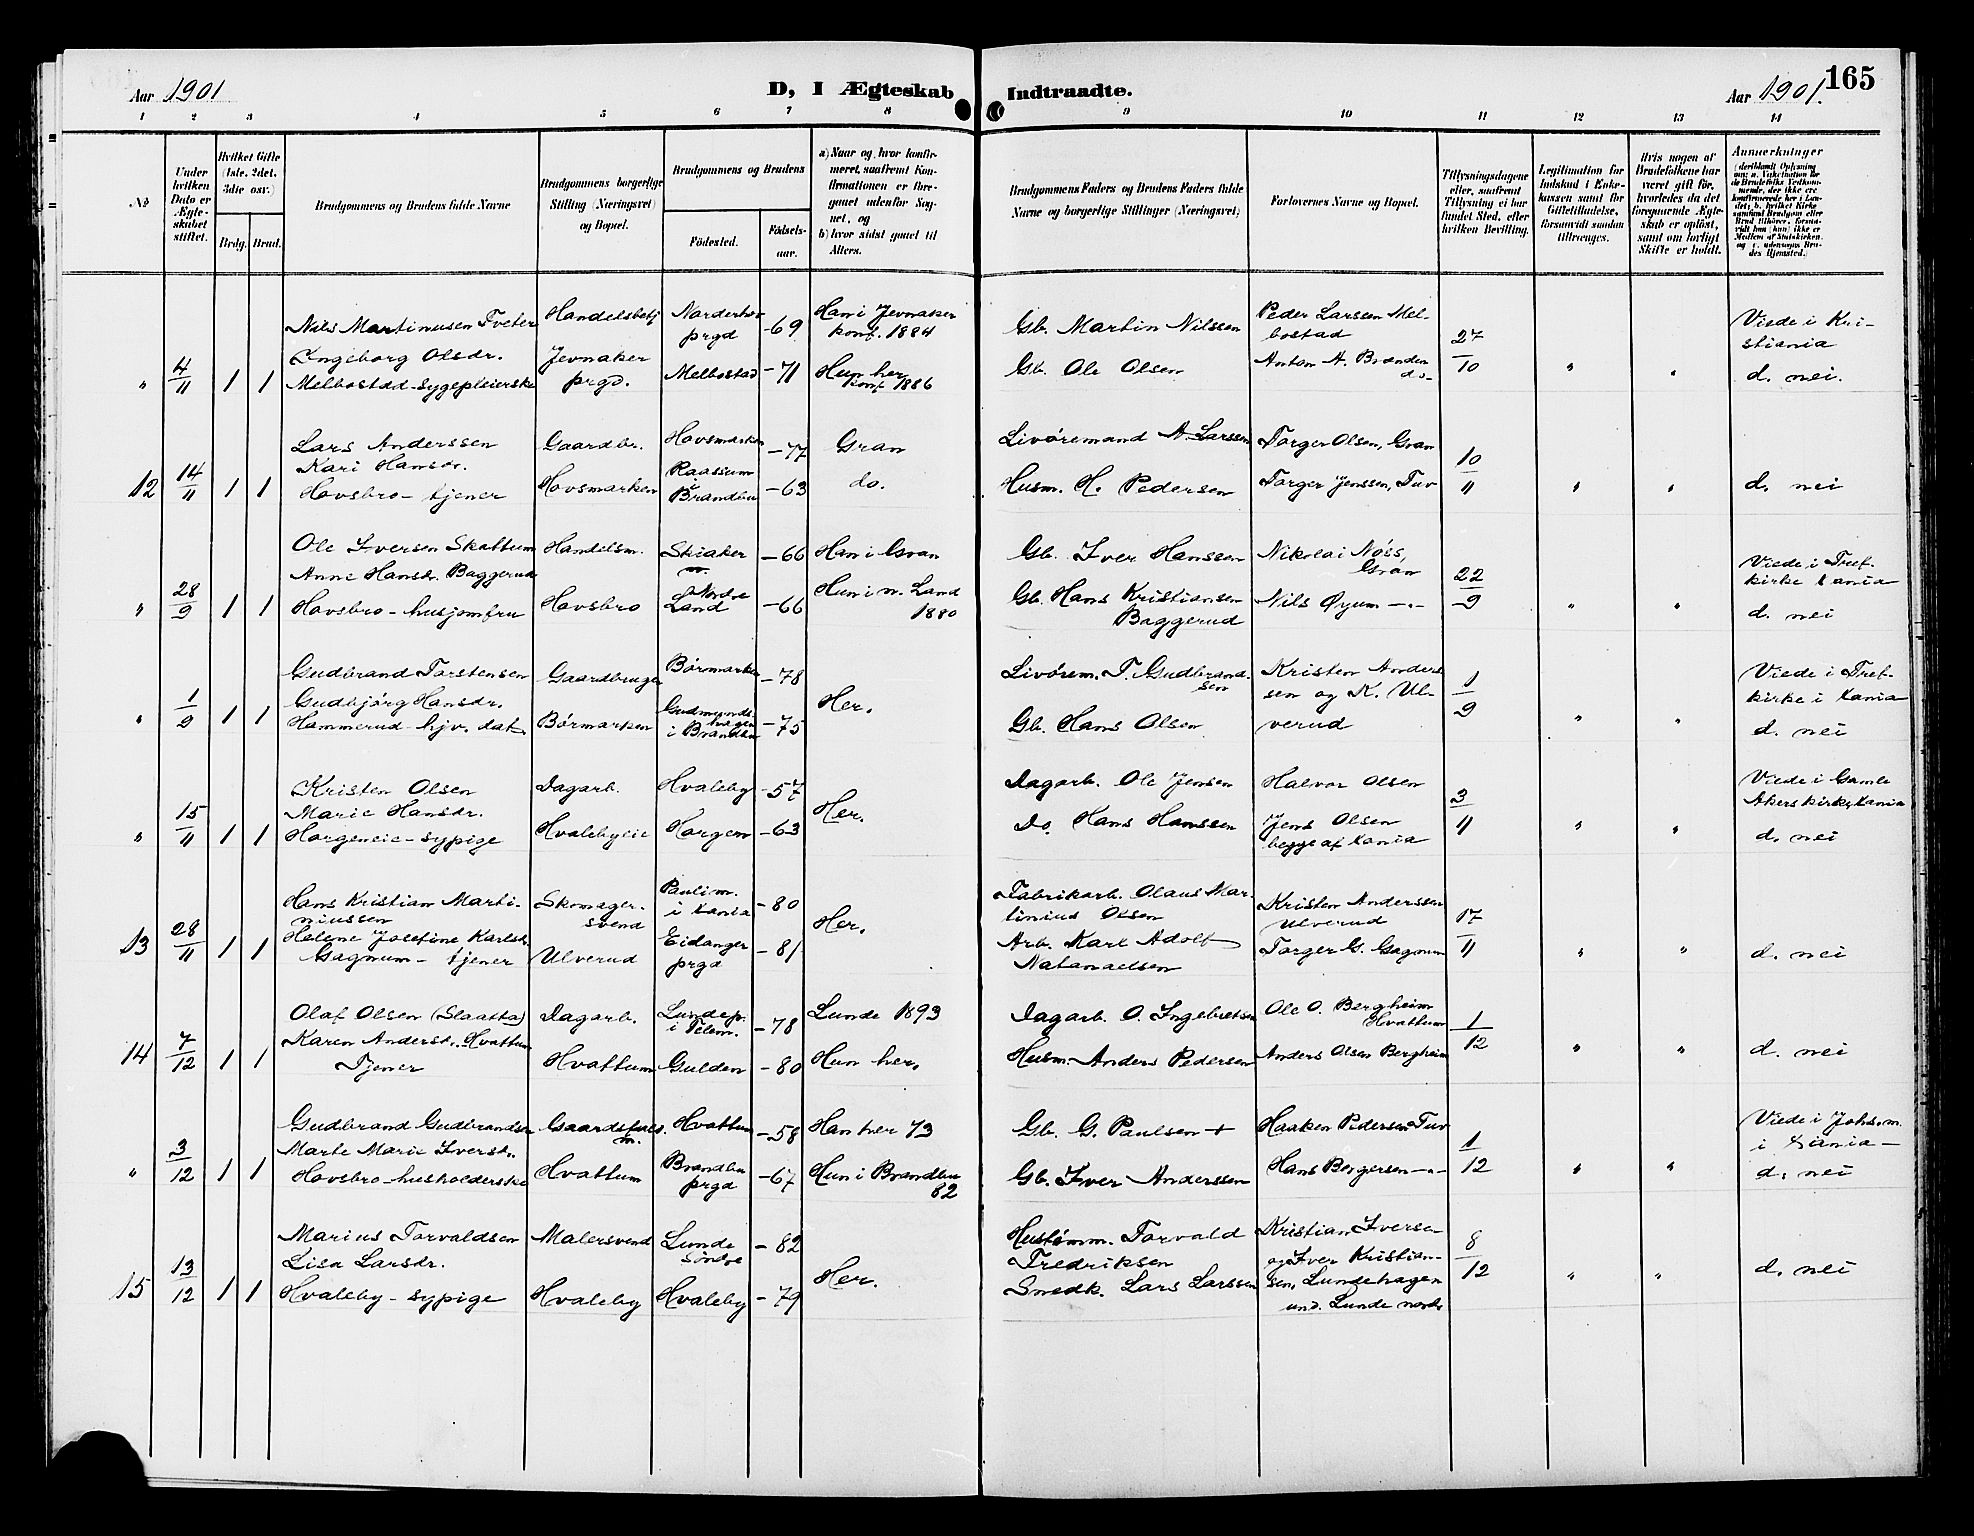 Aar 1901
D, I Ægteskab Indtraadte.
Aar 1901.
165
1 2 3 4 5 6 7 8 9 10 11 12 13 14
№
Under hvilken Dato er Ægteskabet stiftet.
Hvilket Gifte (1ste, 2det, 3die osv.)
Brdg. Brud.
Brudgommens og Brudens fulde Navne
Brudgommens borgerlige Stilling (Næringsvei) og Bopæl.
Brudgommens og Brudens
Fødested.
Fødselsaar.
a) Naar og hvor konfirmeret, saafremt Konfirmationen er foregaaet udenfor Sognet, og
b) hvor sidst gaaet til Alters.
Brudgommens Faders og Brudens Faders fulde Navne og borgerlige Stillinger (Næringsvei)
Forlovernes Navne og Bopæl.
Tillysningsdagene eller, saafremt Tillysning ei har fundet Sted, efter hvilken Bevilling.
Legitimation for Indskud i Enkekassen samt for Giftetilladelse, forsaavidt saadan tiltrænges.
Hvis nogen af Brudefolkene har været gift før, hvorledes da det foregaaende Ægteskab er opløst, samt om lovligt Skifte er holdt.
Anmærkninger
" 4/11 1 1
Nils Martinusen Tveter
Ingeborg Olsdr.
Melbostad - sygepleierske
Handelsbetj
Jevnaker
prgd.
Norderhov
prgd -69
Melbostad -71
Han i Jevnaker
konf. 1884
Hun her
konf 1886
Gb. Martin Nilssen
Gb. Ole Olsen
Peder Larsen Melbostad
Anton A. Brænden
do-
27/10 " "
Viede i Kristiania
d. nei.
12 14/11 1 1
Lars Anderssen
Kari Hansdr.
Hovsbro - tjener
Gaardbr.
Hovsmarken
Hovsmarken -77
Raassum
i
Brandbu -63
Gran
do.
Livøremand A. Larssen
Husm. H. Pedersen
Torger Olsen, Gran
Torger Jenssen, Tuv
10/11 " "
d. nei
" 28/9 1 1
Ole Iversen Skattum
Anne Hansdr. Baggerud
Hovsbro - husjomfru
Handelsm.
Hovsbro
Skiaker -66
Nordre
Land -66
Han i Gran
Hun i n. Land
1880
Gb. Iver Hanssen
Gb. Hans Kristiansen
Baggerud
Nikolai Nøss,
Gran
Nils Øyum -"-
22/9 " "
Viede i Trefkirke Kania
d. nei
" 1/9 1 1
Gudbrand Torstensen
Gudbjørg Hansdr.
Hammerud hjv. dat
Gaardbruger
Børmarken
Børmarken -78
Gudmundshagen
i Brandbu -75
Her.
Livørem. T. Gudbrandsen
Gb. Hans Olsen
Kristen Anderssen og K. Ulverud
1/9 " "
Viede i Trefkirke i Kania
d. nei
" 15/11 1 1
Kristen Olsen
Marie Hansdr.
Horgeneie - sypige
Dagarb.
Hvalebyeie
Hvaleby -57
Horgen -63
Her.
Dagarb. Ole Jensen
Do. Hans Hanssen
Halvor Olsen
Jens Olsen
begge af Kania
3/11 " "
Viede i Gamle
Akers kirke, Kania
d. nei
13 28/11 1 1
Hans Kristian Martiniussen
Helene Josefine Karlsdr.
Gagnum - tjener
Skomagersvend
Ulverud
Paulim.
i Kania -80
Eidanger
prgd -81
Her.
Fabrikarb. Olaus Martinius Olsen
Arb. Karl Adolf
Natanaelsen
Kristen Anderssen
Ulverud
Torger G. Gagnum
17/11 " "
d. nei
14 7/12 1 1
Olaf Olsen (Slaatta)
Karen Andersdr. Hvattum
Tjener
Dagarb.
Hvattum
Lunde p.
i Telem. -78
Gulden -80
Lunde 1893
Hun her.
Dagarb. O. Ingebretsen
Husm. Anders Pedersen
Ole O. Bergheim
Hvattum
Anders Olsen Bergheim
1/12 " "
d. nei
" 3/12 1 1
Gudbrand Gudbrandsen
Marte Marie Iversdr.
Hovsbro - husholderske
Gaardsfuldm.
Hvattum
Hvattum -58
Brandbu
prgd -67
Han her 73
Hun i Brandbu
82
Gb. G. Paulsen +
Gb. Iver Anderssen
Haaken Pedersen Tuv
Hans Bergersen -"-
1/12 " "
Viede i Johs. m.
i Kiania -
d. nei
15 13/12 1 1
Marius Torvaldsen
Lisa Larsdr.
Hvaleby - sypige
Malersvend
Hvaleby
Lunde
søndre -82
Hvaleby -79
Her.
Hustømm. Torvald
Fredriksen
Snedk. Lars Larssen
Kristian Iversen
og Iver Kristiansen, Lundehagen
und. Lunde nordr
8/12 " "
d. nei